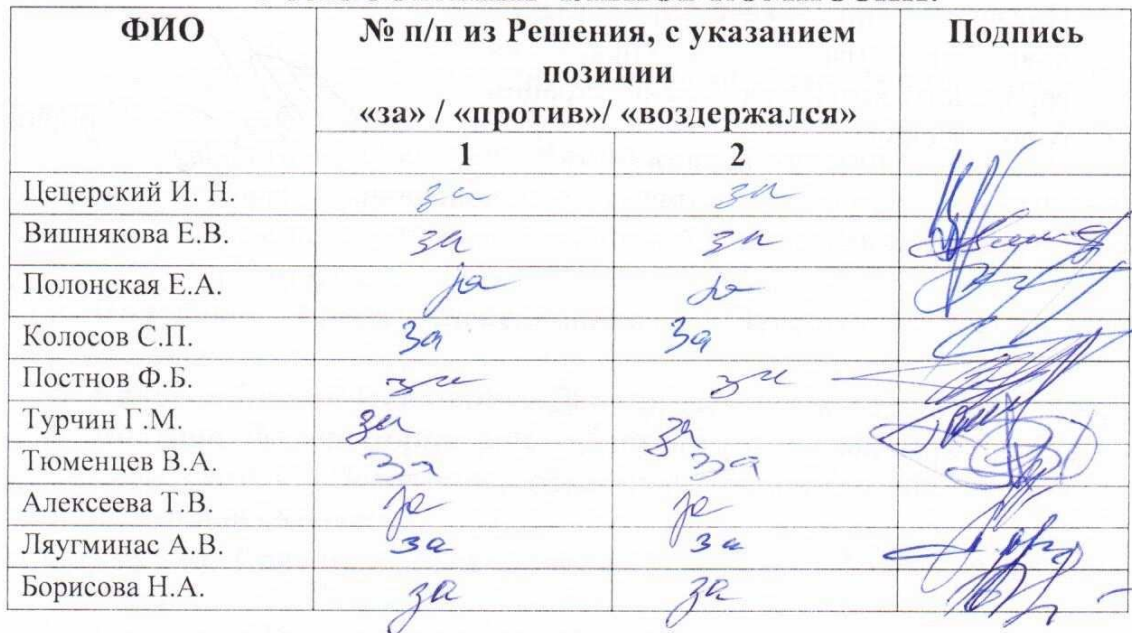 ФИО № п/п из Решения, с указанием Подпись
позиции
«за» / «против»/ «воздержался»
1 2
Цецерский И. Н. за за
Вишнякова Е.В. за за
Полонская Е.А. за за
Колосов С.П. За За
Постнов Ф.Б. за за
Турчин Г.М. за за
Тюменцев В.А. За За
Алексеева Т.В. за за
Ляугминас А.В. за за
Борисова Н.А. за за